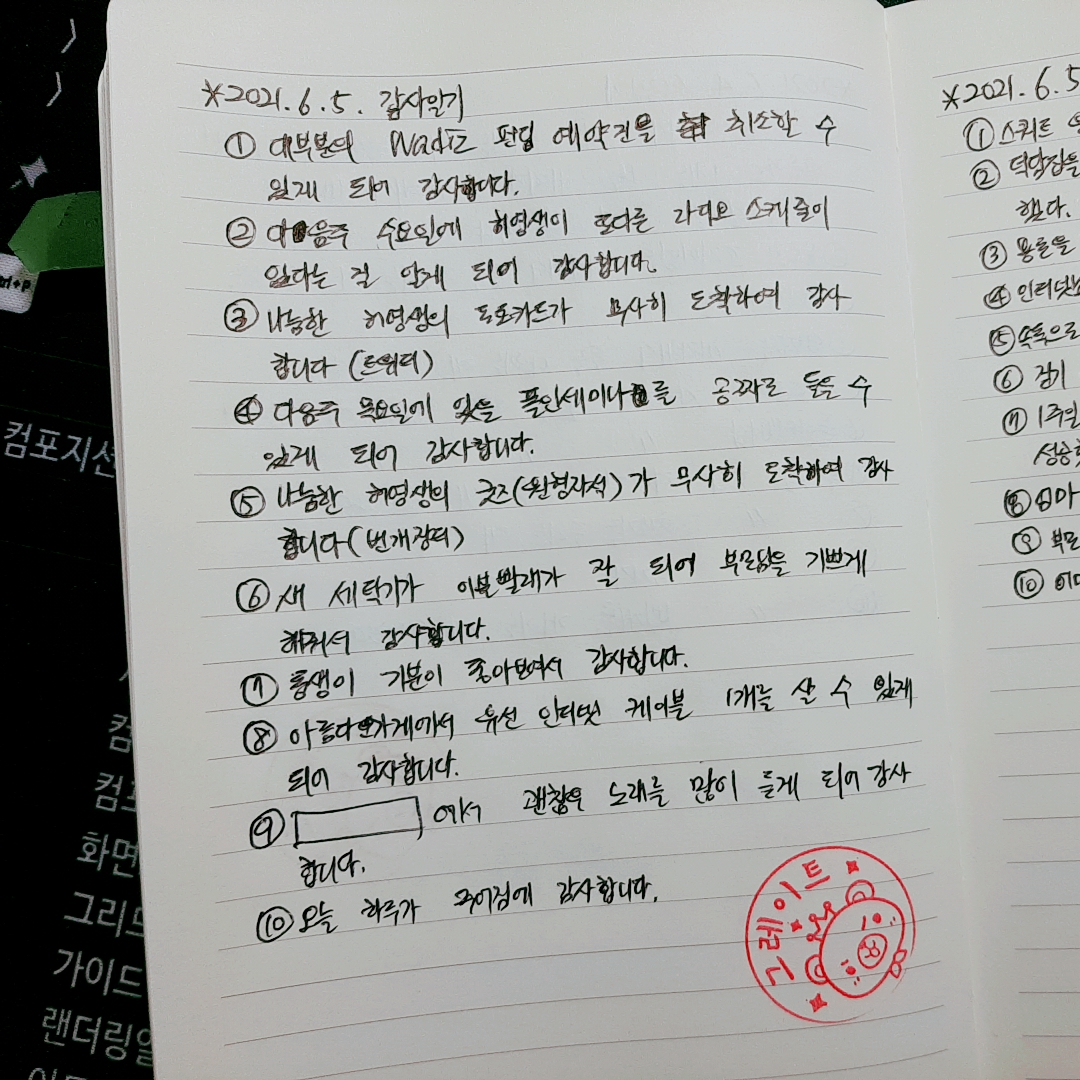 *2021.6.5. 감사일기
① 대부분의 Wadiz 펀딩 예약건을 취소할 수
있게 되어 감사합니다.
② 다음주 수요일에 허영생이 또다른 라디오 스케줄이
있다는 걸 알게 되어 감사합니다.
③ 나눔한 허영생의 포토카드가 무사히 도착하여 감사
합니다 (트위터)
④ 다음주 목요일에 있을 폴인세미나를 공짜로 들을 수
있게 되어 감사합니다.
⑤ 나눔한 허영생의 굿즈(원형자석)가 무사히 도착하여 감사
합니다 (번개장터)
⑥ 새 세탁기가 이불빨래가 잘 되어 부모님을 기쁘게
해줘서 감사합니다.
⑦ 동생이 기분이 좋아보여서 감사합니다.
⑧ 아름다운가게에서 유선 인터넷 케이블 1개를 살 수 있게
되어 감사합니다.
⑨ 에서 괜찮은 노래를 많이 듣게 되어 감사
합니다.
⑩ 오늘 하루가 주어짐에 감사합니다.
그레이트
*2021.6.5
① 스쿼트
② 덕담집을
했다.
③ 용돈을
④ 인터넷
⑤ 쪽쪽으로
⑥ 감기
⑦ 1주일
⑧ 엄마
⑨ 부모
⑩
컴포지션
컴
컴포
화면
그리드
가이드
랜더링일